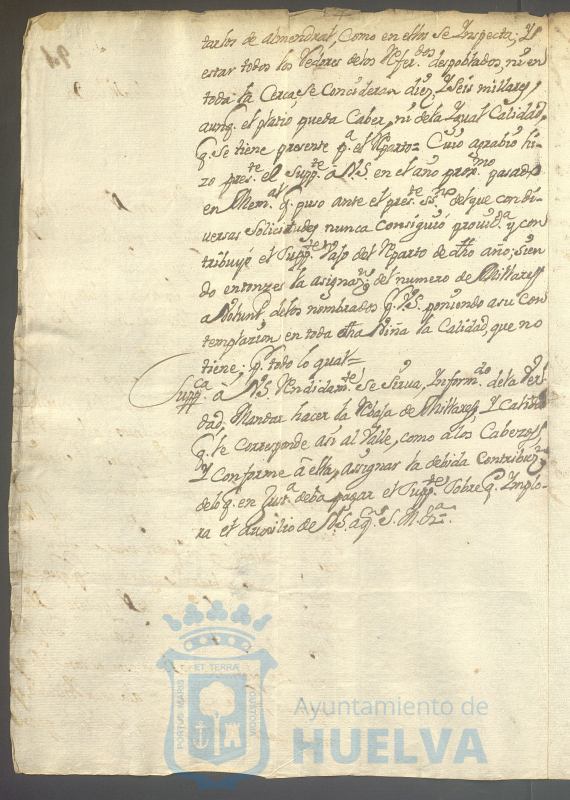 tarlos de almendral, como en ellos se Inspecta; Y
estar todos los Vedores de los Refer.dos despoblados, ni en
toda la Cerca, se Conсideran diez, Y seis millares,
aunq. el platio pueda Caber, ni de la Igual Calidad,
q. se tiene presente p.a el Rparto= Cuio agrabio hi-
zo pres.te el Supp.te a V.S. en el año prox.mo pasado
en Mem.al q. puso ante el pres.te ss.no del que con di-
versas solicitudes nunca consiguió provid.a y con
tribuyé el Supp.te vajo del Rparto de dho año; sien
do entonzes la asignaz.n del numero de Millares
a Volunt.d de los nombrados q. V.S. poniendo asu con
templazion en toda dha Viña la Calidad, que no
tiene; p.r todo lo qual=
Supp.ca a V.S. Rendidam.te se sirva, Inform.do de la Ver
dad, Mandar hacer la Rbaja de Millares, Y Calidad
q. le Corresponde asi al Valle, como a los Cabezos,
Y Conforme a ella, asignar la debida Contribuz.n
delo q. en Just.a deba pagar el Supp.te Sobre q. Implo-
ra el Auxilio de V.S. a q.
PORTUS MARIS ET TERRAE CUSTODIA
Ayuntamiento de
HUELVA